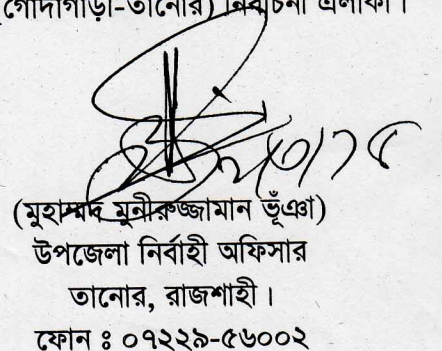 (গোদাগাড়ী-তানোর) নির্বাচনী এলাকা।
(মুহাম্মদ মুনীরুজ্জামান ভূঁঞা)
উপজেলা নির্বাহী অফিসার
তানোর, রাজশাহী।
ফোন ঃ ০৭২২৯-৫৬০০২